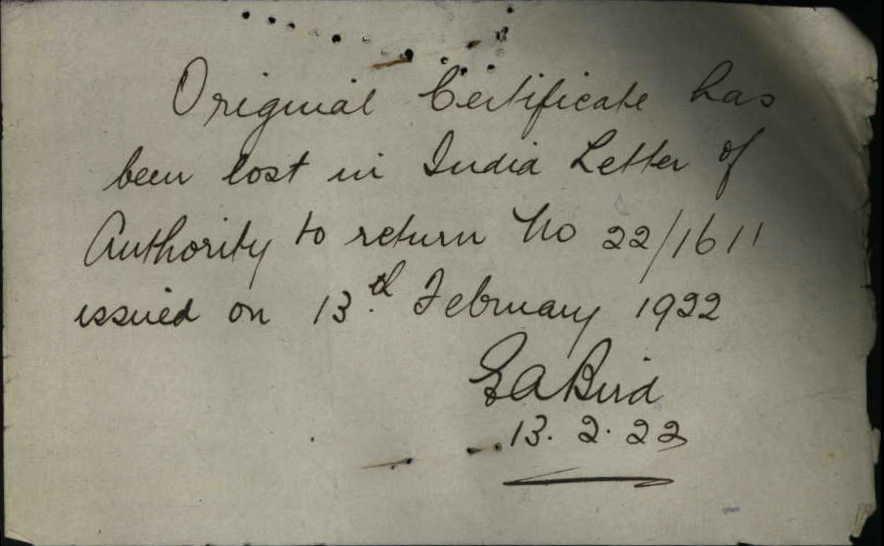 Original Certificate has
been lost in India Letter of
Authority to return No 22/1611
issued on 13th. February 1922
G A Bird
13. 2. 22